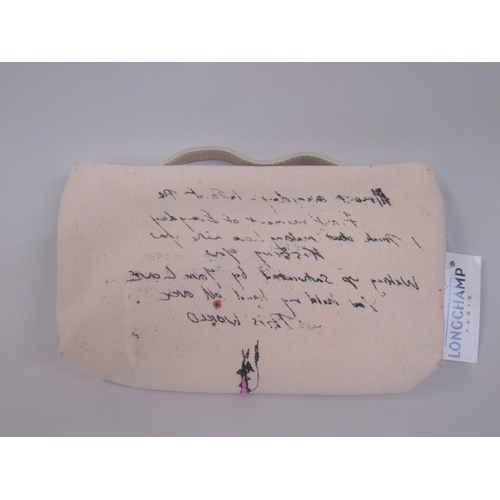 almost everyday
First moment of everyday
I Think about making love with you
Kissing eyes
Waking up Surrounded by Your Love
You hold my hand all over
This WORLD
LONGCHAMP®
PARIS